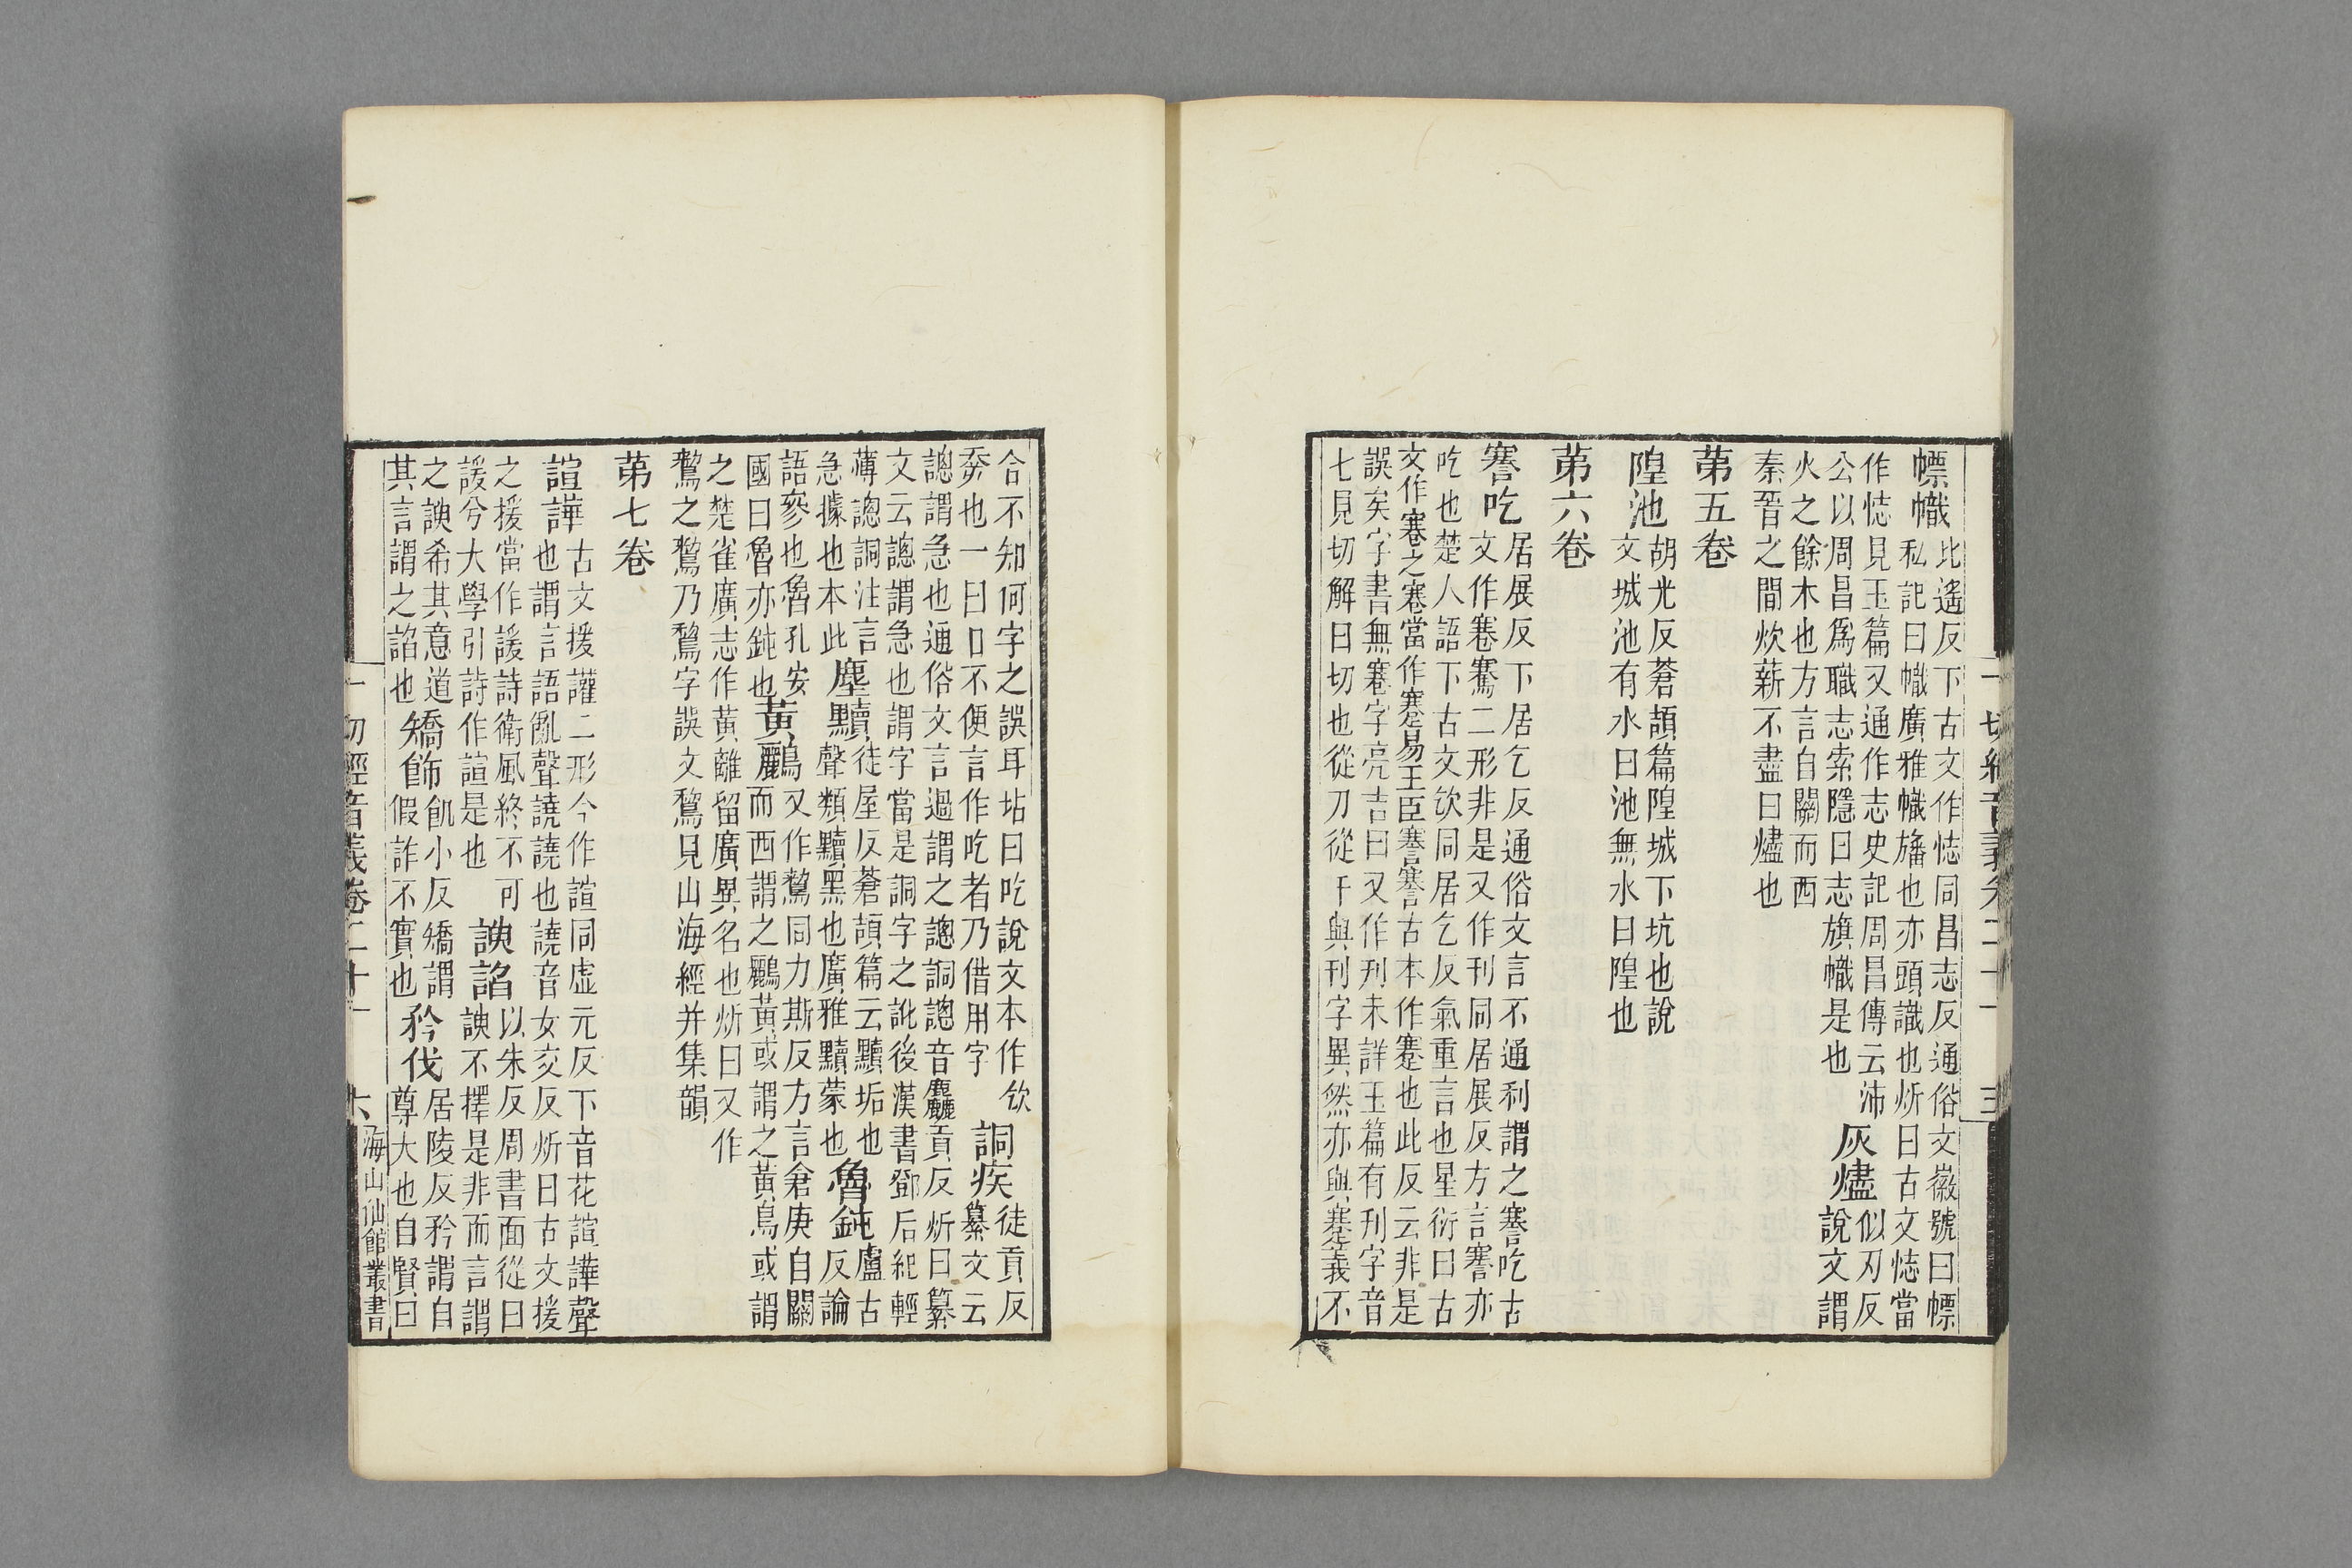 一切經音義卷二十一 三
幖幟比遙反下古文作㤴同昌志反通俗文徽號曰幖
私記曰幟廣雅幟旛也亦頭識也炘曰古文㤴當
作㤴見玉篇又通作志史記周昌傳云沛
公以周昌爲職志索隱曰志旗幟是也灰燼似刃反
說文謂
火之餘木也方言自關而西
秦晉之間炊薪不盡曰燼也
苐五卷
隍池胡光反蒼頡篇隍城下坑也說
文城池有水曰池無水曰隍也
苐六卷
謇吃居展反下居乞反通俗文言不通利謂之謇吃古
文作𧮈騫二形非是又作刊同居展反方言謇亦
吃也楚人語下古文㰟同居乞反氣重言也星衍曰古
文作𧮈之𧮈當作蹇易王臣謇謇古本作蹇也此反云非是
誤矣字書無𧮈字亮吉曰又作刋未詳玉篇有刋字音
七見切解曰切也從刀從千與刊字異然亦與蹇義不
合不知何字之誤耳坫曰吃說文本作㰟
㱃也一曰口不便言作吃者乃借用字詷疾徒貢反
纂文云
謥謂急也通俗文言過謂之謥詷謥音麤貢反炘曰纂
文云謥謂急也謂字當是詷字之訛後漢書鄧后紀輕
薄謥詷注言
急據也本此塵黷徒屋反蒼頡篇云黷垢也
聲類黷黑也廣雅黷蒙也魯鈍盧古
反論
語叅也魯孔安
國曰魯亦鈍也黃鸝又作鶿同力斯反方言倉庚自關
而西謂之鸝黃或謂之黃鳥或謂
之楚雀廣志作黃離留廣異名也炘曰又作
鶿之鶿乃鵹字誤文鵹見山海經并集韻
苐七卷
諠譁古文㩪讙二形今作諠同虛元反下音花諠譁聲
也謂言語亂聲譊譊也譊音女交反炘曰古文㩪
之㩪當作諼詩衛風終不可
諼兮大學引詩作諠是也諛諂以朱反周書面從曰
諛不擇是非而言謂
之諛希其意道
其言謂之諂也矯飾飢小反矯謂
假詐不實也矜伐居陵反矜謂自
尊大也自賢曰
一切經音義卷二十一 六 海山仙館叢書